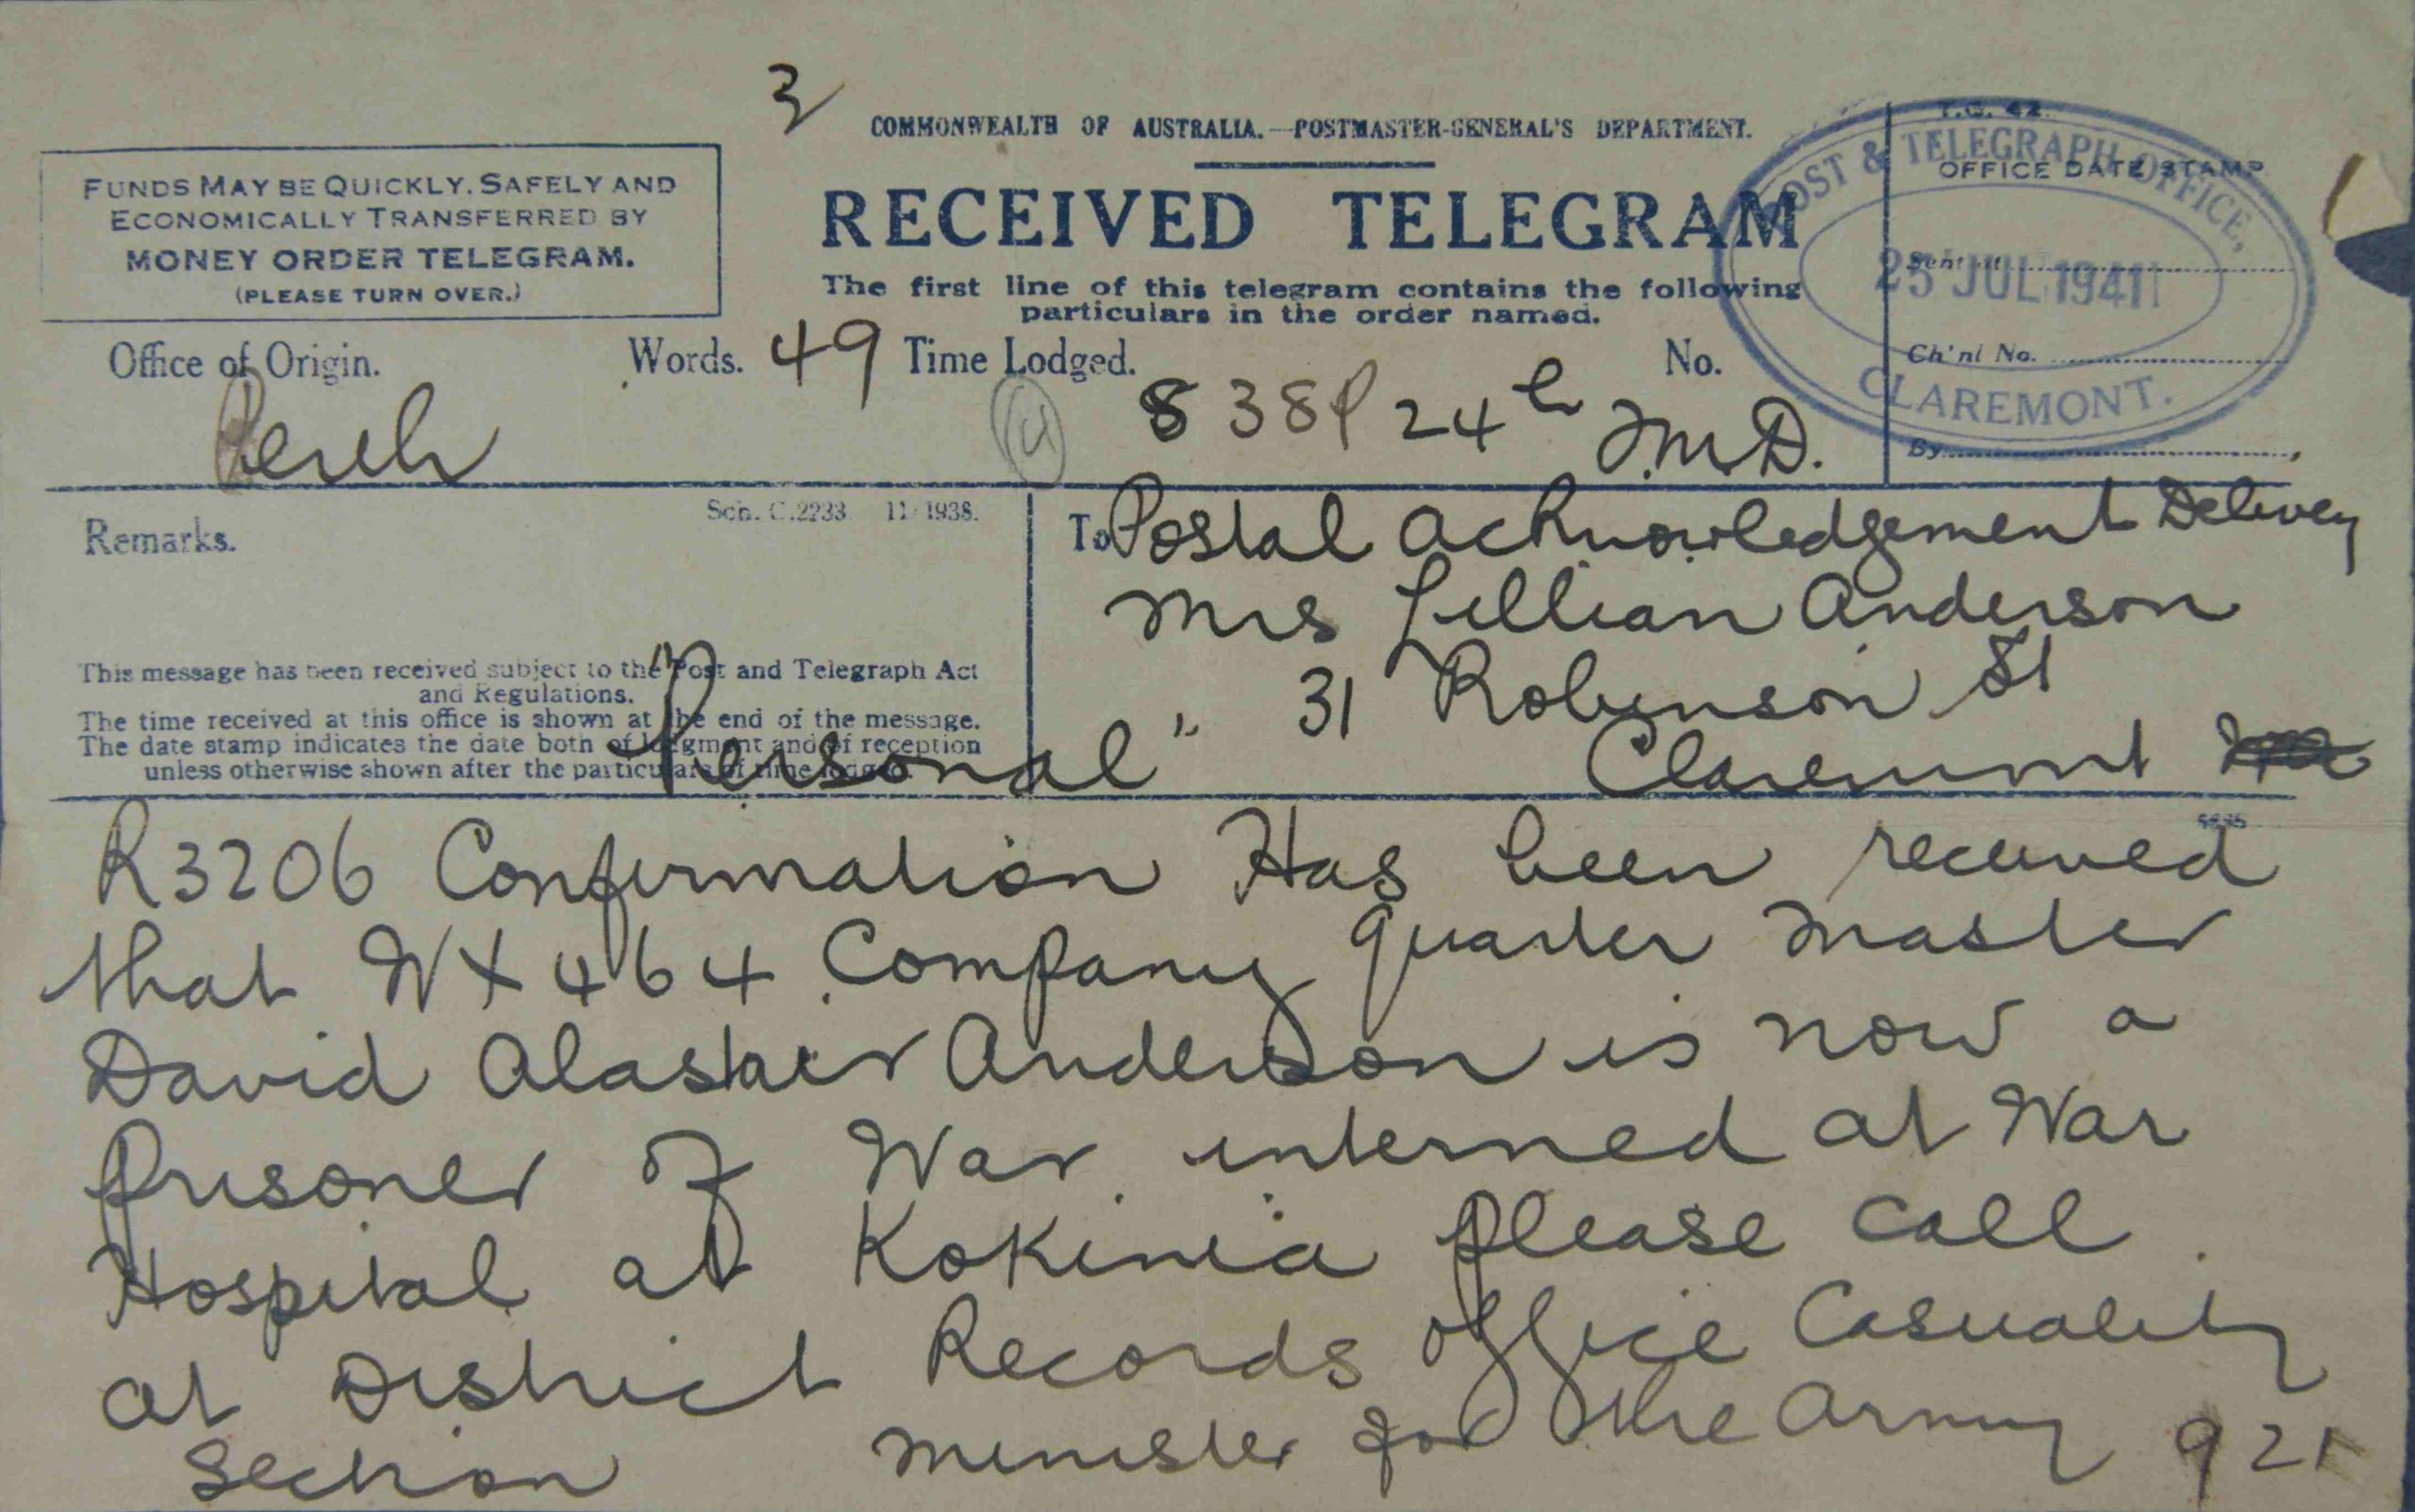 3
COMMONWEALTH OF AUSTRALIA.—POSTMASTER-GENERAL'S DEPARTMENT.
T.G. 42.
FUNDS MAY BE QUICKLY, SAFELY AND
ECONOMICALLY TRANSFERRED BY
MONEY ORDER TELEGRAM.
(PLEASE TURN OVER.)
RECEIVED TELEGRAM
The first line of this telegram contains the following
particulars in the order named.
OFFICE DATE STAMP
POST & TELEGRAPH OFFICE,
25 JUL 1941
CLAREMONT.
Sent at
Ch'nl No.
By
Office of Origin. Words. 49 Time Lodged. No.
Perth 838P 24th J.M.D.
Sch. C.2233. 11/1938.
Remarks.
To Postal Acknowledgement Delivery
Mrs Lillian Anderson
31 Robinson St
Claremont
This message has been received subject to the Post and Telegraph Act
and Regulations.
The time received at this office is shown at the end of the message.
The date stamp indicates the date both of lodgment and of reception
unless otherwise shown after the particulars of time lodged.
"Personal"
R3206 Confirmation Has been received
that WX464 Company Quarter Master
David Alastair Anderson is now a
Prisoner of War interned at War
Hospital at Kokinia please call
at District Records Office Casuality
Section Minister for the Army 921